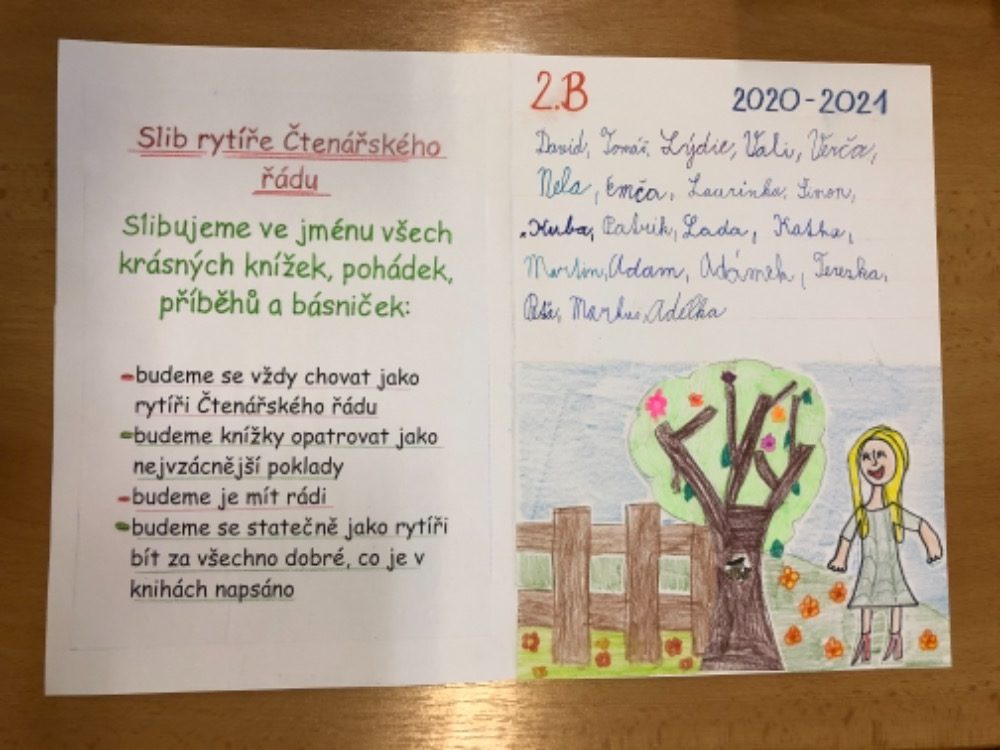 Slib rytíře Čtenářského
řádu
Slibujeme ve jménu všech
krásných knížek, pohádek,
příběhů a básniček:
-budeme se vždy chovat jako
rytíři Čtenářského řádu
-budeme knížky opatrovat jako
nejvzácnější poklady
-budeme je mít rádi
-budeme se statečně jako rytíři
bít za všechno dobré, co je v
knihách napsáno
2.B
2020-2021
David, Tomáš, Lýdie, Vali, Verča,
Nela, Emča, Laurinka, Šimon,
Kuba, Patrik, Lada, Katka,
Martin, Adam, Adámek, Terezka,
Markus, Adélka